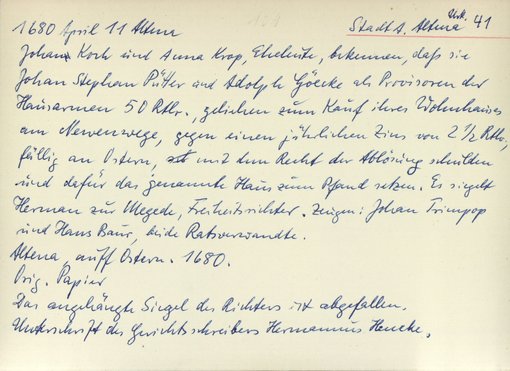 1680 April 11 Altena
Stadt A. Altena Urk. 41
Johann Koch und Anna Krop, Eheleute, bekennen, daß sie
Johan Stephan Pütter und Adolph Göecke als Provisoren der
Hausarmen 50 Rtlr., geliehen zum Kauf ihres Wohnhauses
am Nerwenwege, gegen einen jährlichen Zins von 2 1/2 Rtlr,
fällig an Ostern, mit dem Recht der Ablösung schulden
und dafür das genannte Haus zum Pfand setzen. Es siegelt
Herman zur Megede, Freiheitsrichter. Zeugen: Johan Trimpop
und Hans Baur, beide Ratsverwandte.
Altena, auff Ostern. 1680.
Orig. Papier
Das angehängte Siegel des Richters ist abgefallen.
Unterschrift des Gerichtsschreibers Hermannus Hencke.